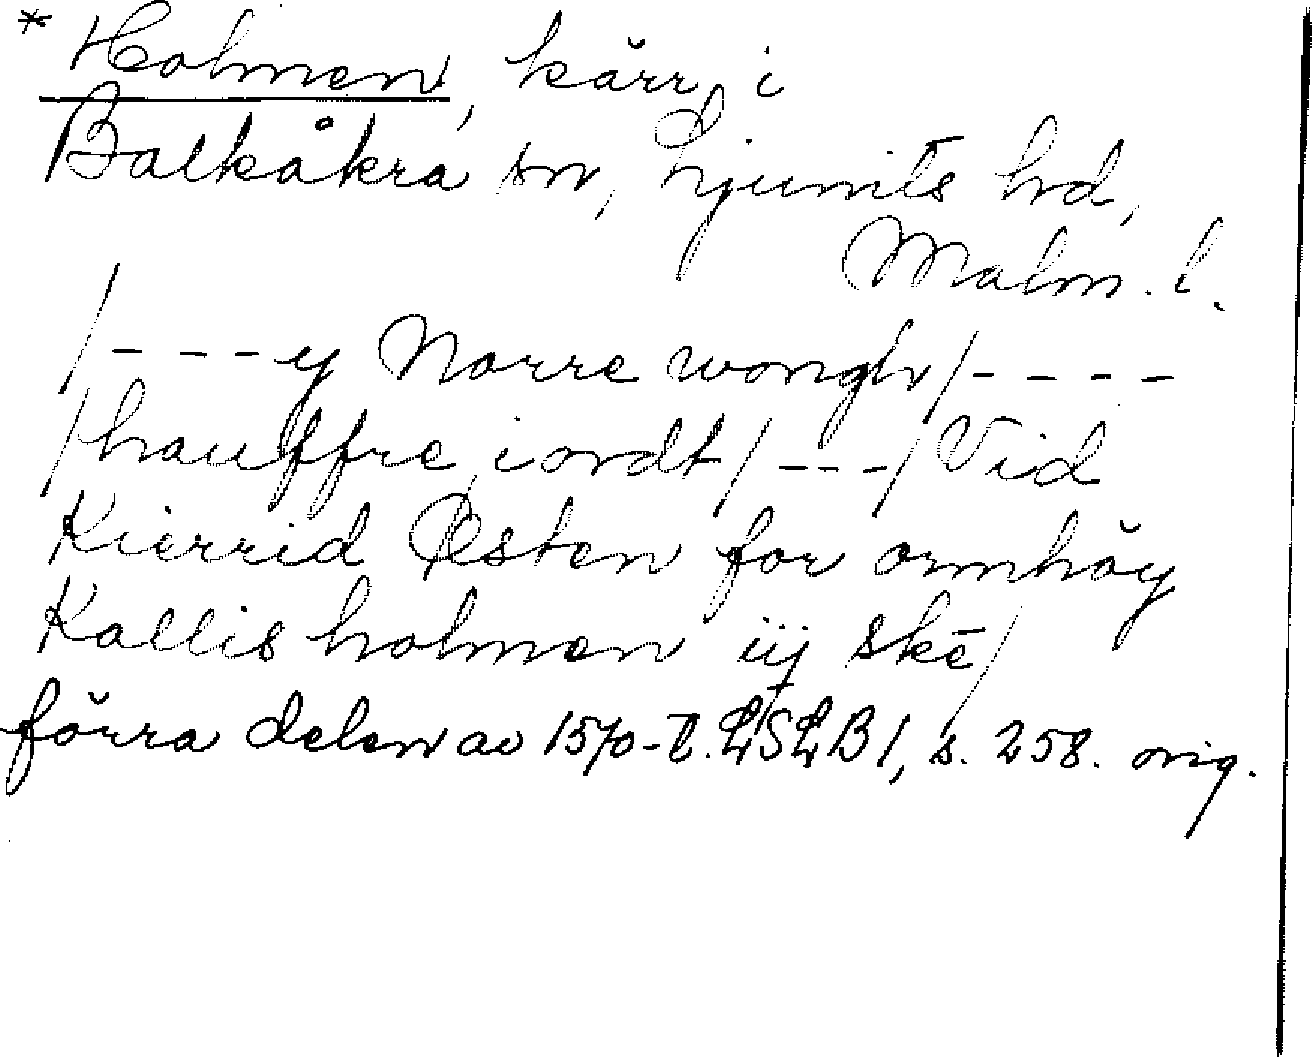 * Holmen, kärr, i
Balkåkra sn, Ljunits hd,
Malm. l.
/---y Norre wongh/----
/hauffre iordt/---/Vid
Kierrid Østen for ormhöy
Kallis holmen iij ske/
förra delen av 1570-t. LSLB1, s. 258. orig.